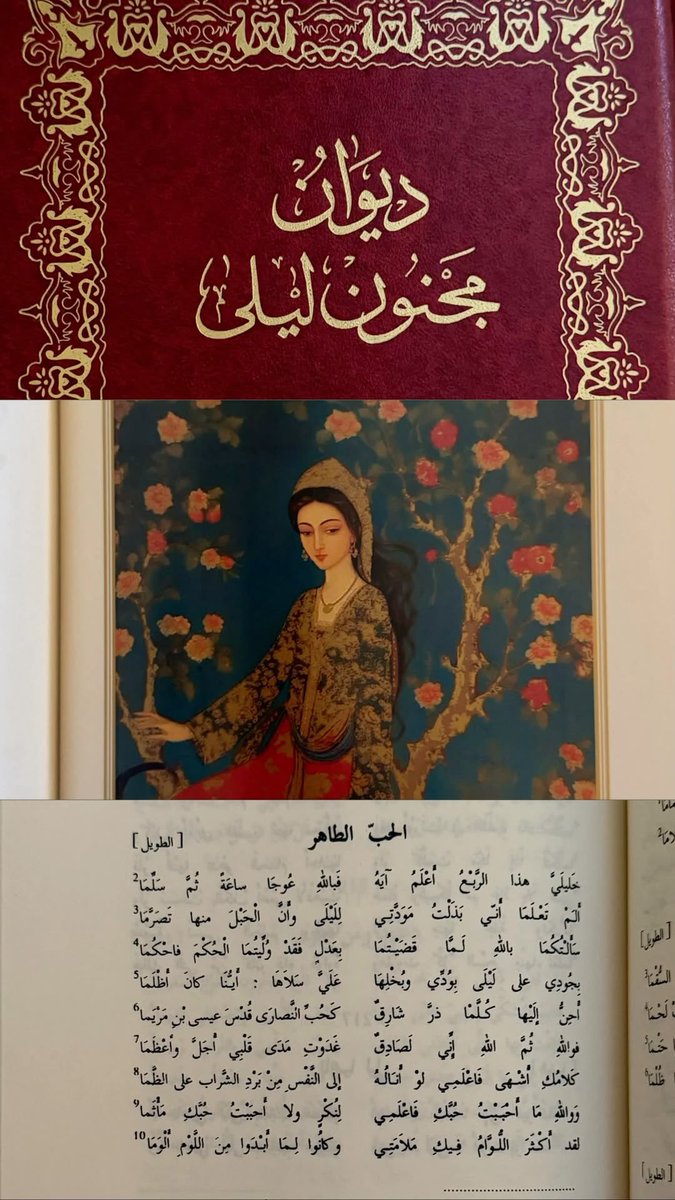 دِيوَانُ
مَجْنُون لَيْلى
الحبّ الطاهر
[الطويل]
خَلِيلَيَّ هذا الرَّبْعُ أَعْلَمُ آيَهُ فَبِاللهِ عُوجَا سَاعَةً ثُمَّ سَلِّمَا2
أَلَمْ تَعْلَمَا أَنّي بَذَلْتُ مَوَدَّتِي لِلَيْلَى وَأَنَّ الْحَبْلَ منها تَصَرَّمَا3
سَأَلْتُكُمَا بِاللهِ لَمَّا قَضَيْتُمَا بِعَدْلٍ فَقَدْ وُلِّيتُمَا الْحُكْمَ فاحْكُمَا4
بِجُودِي على لَيْلَى بِوُدِّي وَبُخْلِهَا عَلَيَّ سَلاَهَا : أَيُّنَا كانَ أَظْلَمَا5
أَحِنُّ إِلَيْها كُلَّمَا ذرَّ شَارِقٌ كَحُبِّ النَّصارَى قُدْسَ عيسى بْنِ مَرْيَما6
فواللهِ ثُمَّ اللهِ إِنِّي لَصَادِقٌ غَدَوْتِ مَدَى قَلْبِي أَجَلَّ وأَعْظَمَا7
كَلاَمُكِ أَشْهَى فَاعْلَمِي لَوْ أَنَالُهُ إلى النَّفْسِ مِنْ بَرْدِ الشَّراب على الظَّمَا8
وَواللهِ مَا أَحْبَبْتُ حُبَّكِ فَاعْلَمِي لِنُكْرٍ ولا أَحبَبْتُ حُبَّكِ مَأْثَما9
لقد أَكْثَرَ اللُّوَّامُ فِيكِ مَلاَمَتِي وكانُوا لِمَا أَبْدَوا مِنَ اللَّوْمِ أَلْوَمَا10
[الطويل]
[الطويل]